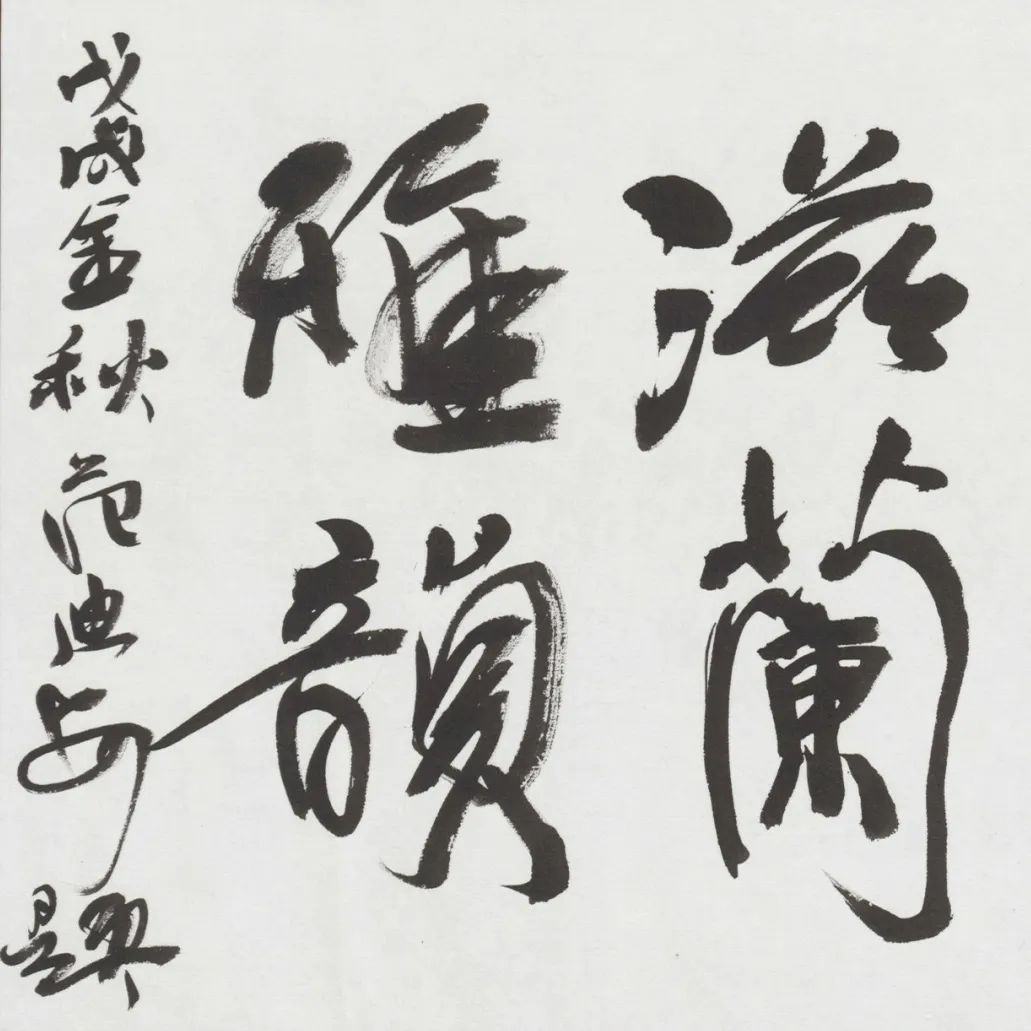 滋蘭
雅韻
戊戌金秋范迪安題